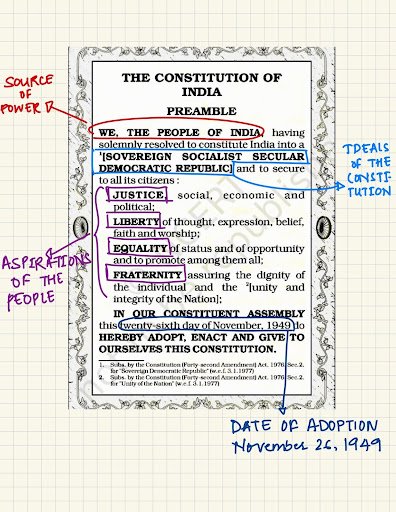 SOURCE
OF
POWER
THE CONSTITUTION OF
INDIA
PREAMBLE
WE, THE PEOPLE OF INDIA, having
solemnly resolved to constitute India into a
¹[SOVEREIGN SOCIALIST SECULAR
DEMOCRATIC REPUBLIC] and to secure
to all its citizens :
IDEALS
OF THE
CONSTI-
TUTION
JUSTICE, social, economic and
political;
LIBERTY of thought, expression, belief,
faith and worship;
EQUALITY of status and of opportunity
and to promote among them all;
FRATERNITY assuring the dignity of
the individual and the ²[unity and
integrity of the Nation];
ASPIRATIONS
OF THE
PEOPLE
IN OUR CONSTITUENT ASSEMBLY
this twenty-sixth day of November, 1949 do
HEREBY ADOPT, ENACT AND GIVE TO
OURSELVES THIS CONSTITUTION.
1. Subs. by the Constitution (Forty-second Amendment) Act, 1976, Sec.2,
for "Sovereign Democratic Republic" (w.e.f. 3.1.1977)
2. Subs. by the Constitution (Forty-second Amendment) Act, 1976, Sec.2,
for "Unity of the Nation" (w.e.f. 3.1.1977)
DATE OF ADOPTION
November 26, 1949